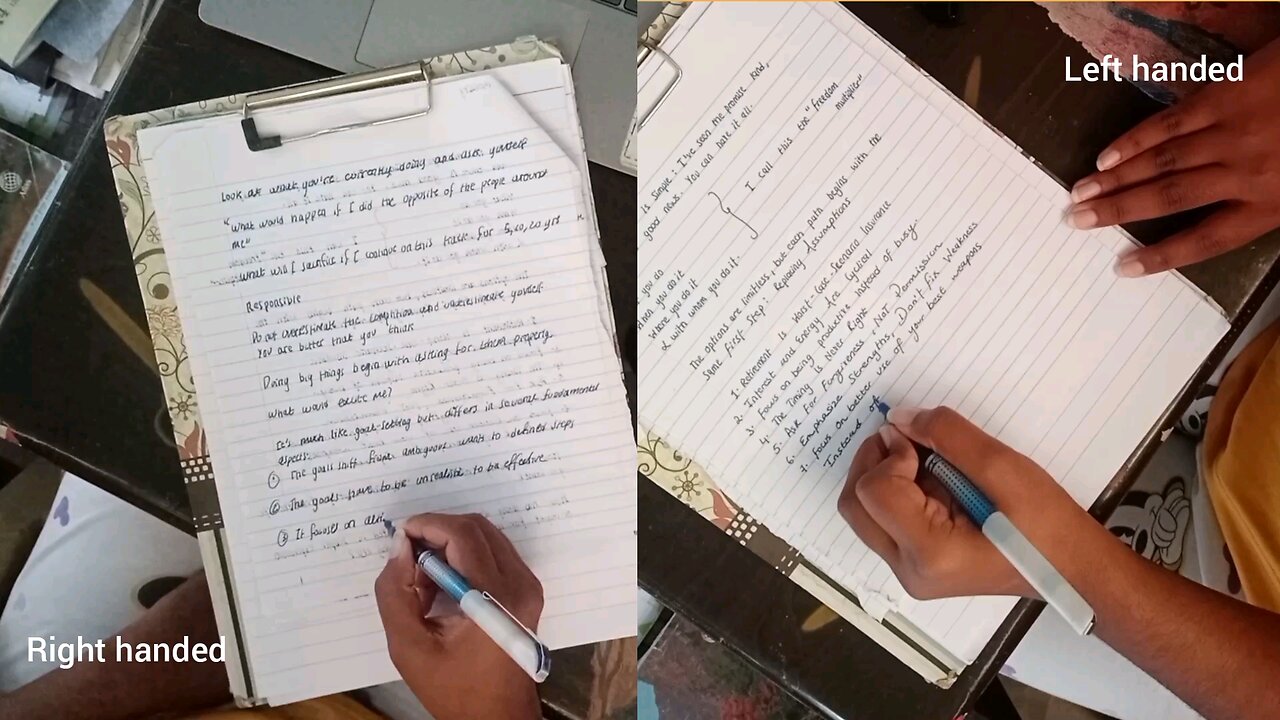 Look at what you're currently doing and ask yourself
"What would happen if I did the opposite of the people around
me"
What will I sacrifice if I continue on this track for 5, 10, 20 yrs
Responsible
Do not overestimate the competition and underestimate yourself
You are better than you think
Doing big things begin with asking for them properly
What would excite me?
It's much like goal-setting but differs in several fundamental
aspects:
① The goals shift from ambiguous wants to defined steps
② The goals have to be unrealistic to be effective
③ It focuses on
Right handed
Left handed
is simple: I've seen the promise land,
good news. You can have it all.
you do
When you do it
Where you do it
& with whom you do it.
} I call this the "Freedom
multiplier"
The options are limitless, but each path begins with the
same first step: Replacing Assumptions
1. Retirement is Worst-Case-Scenario Insurance
2. Interest and Energy Are Cyclical
3. Focus on being productive instead of busy
4. The Timing is Never Right
5. Ask For Forgiveness, Not Permission
6. Emphasize Strengths, Don't Fix Weakness
7. Focus on better use of your best weapons
Instead of